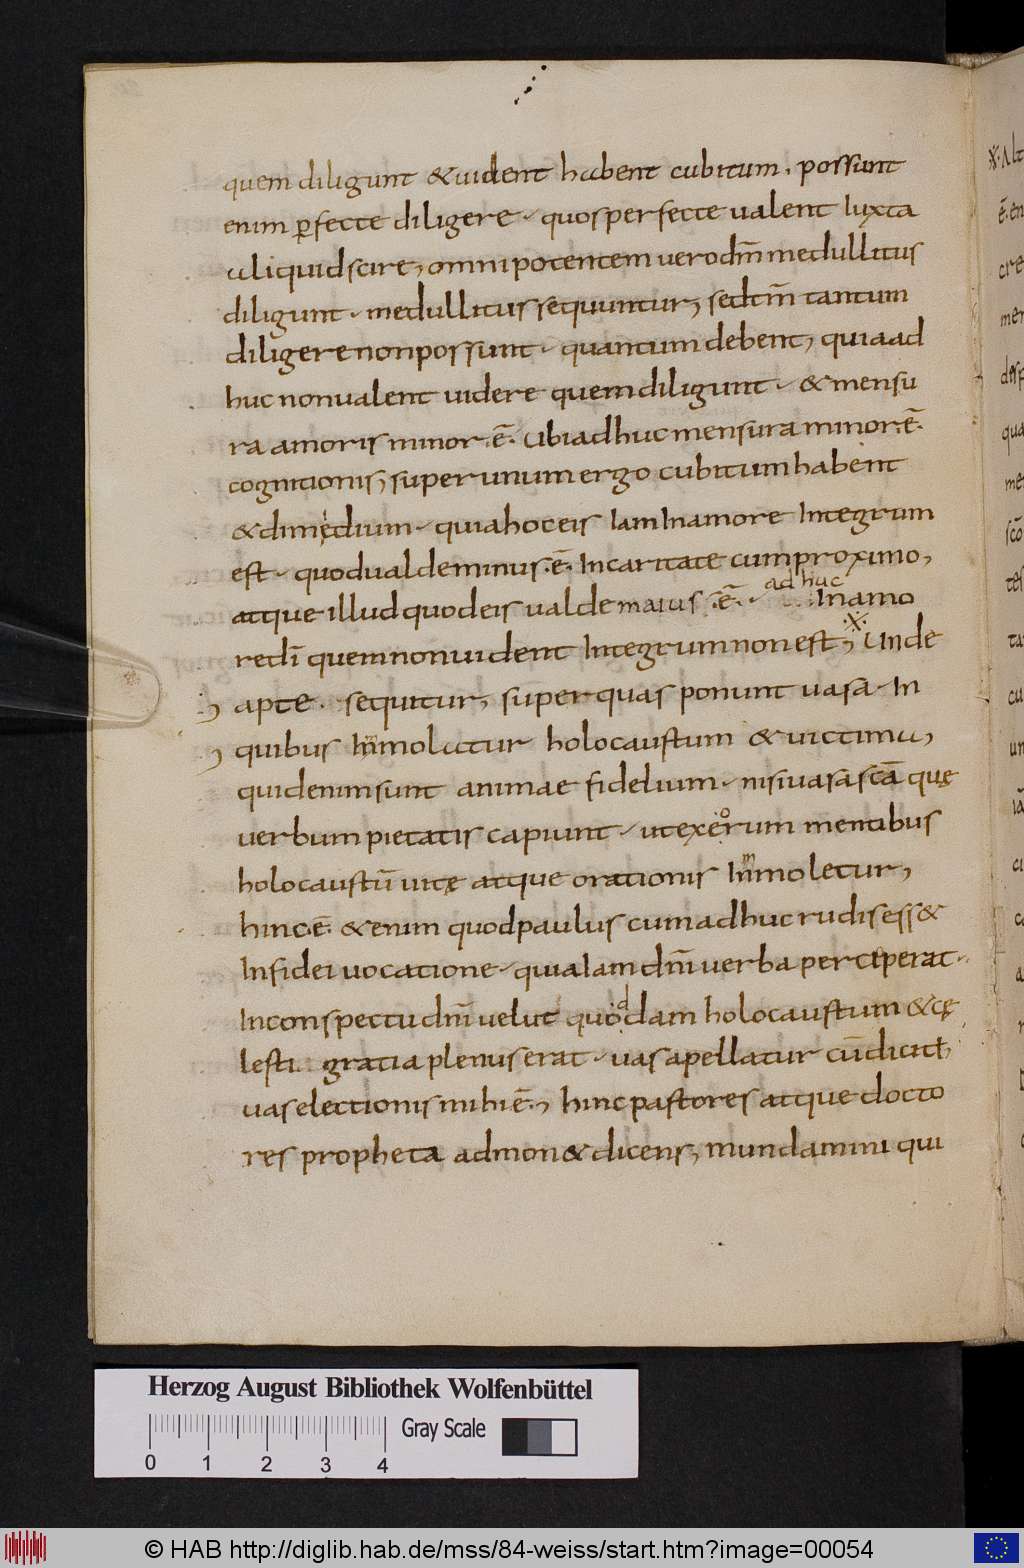 quem diligunt & uident habent cubitum. possunt
enim ꝑfecte diligere. quos perfecte ualent Iuxta
aliquid scire, omnipotentem uero dm̄ medullitus
diligunt. medullitus sequuntur, sed tm̄ tantum
diligere non possunt. quantum debent, quia ad
huc non ualent uidere quem diligunt. & mensu
ra amoris minor .ē. Ubi adhuc mensura minor .ē.
cognitionis, super unum ergo cubitum habent
& dimedium. quia hoc eis Iam In amore Integrum
est. quod ualde minus .ē. In caritate cum proximo,
atque illud quod eis ualde maius .ē. ad huc In amo
re dī quem non uident Integrum non est, Unde
apte. sequitur, super quas ponunt uasa. In
quibus Inmolatur holocaustum & uictima,
quid enim sunt animae fidelium. nisi uasa scā quę
uerbum pietatis capiunt. ut ex eorum mentibus
holocaustū uitę atque orationis Inmoletur,
hinc .ē. & enim quod paulus cum adhuc rudis ess&
In fidei uocatione. quia Iam dm̄ uerba perceperat.
In conspectu dm̄ uelut quoddam holocaustum & cę
lesti gratia plenus erat. uas apellatur cū dicit,
uas electionis mihi ē., hinc pastores atque docto
res propheta admon& dicens, mundamini qui
Herzog August Bibliothek Wolfenbüttel
Gray Scale
0 1 2 3 4
© HAB http://diglib.hab.de/mss/84-weiss/start.htm?image=00054